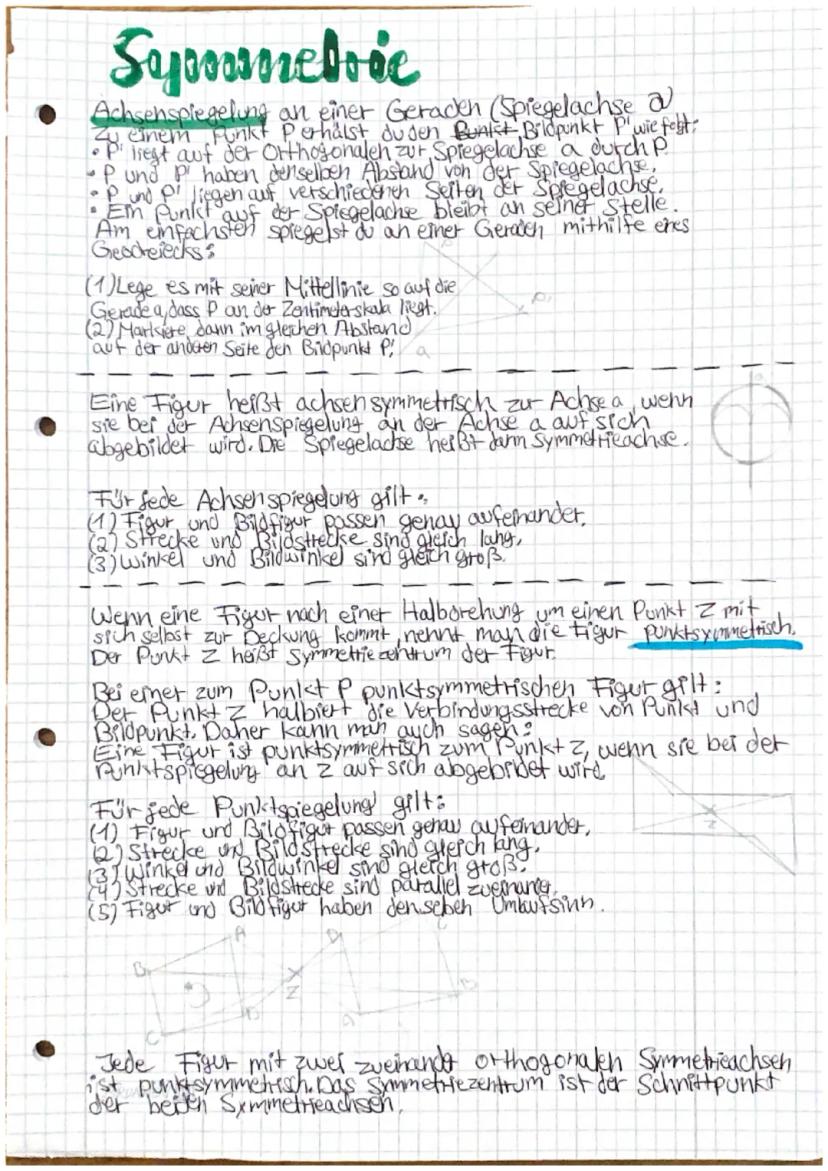 Symmetrie
Achsenspiegelung an einer Geraden (Spiegelachse a)
Zu einem Punkt P erhälst du den Punkt Bildpunkt P' wie folgt:
• P' liegt auf der Orthogonalen zur Spiegelachse a durch P.
• P und P' haben denselben Abstand von der Spiegelachse.
• P und P' liegen auf verschiedenen Seiten der Spiegelachse.
• Ein Punkt auf der Spiegelachse bleibt an seiner Stelle.
Am einfachsten spiegelst du an einer Geraden mithilfe eines
Geodreiecks:
(1) Lege es mit seiner Mittellinie so auf die
Gerade a, dass P an der Zentimeterskala liegt.
(2) Markiere dann im gleichen Abstand
auf der anderen Seite den Bildpunkt P'.
P'
a
Eine Figur heißt achsensymmetrisch zur Achse a, wenn
sie bei der Achsenspiegelung an der Achse a auf sich
abgebildet wird. Die Spiegelachse heißt dann Symmetrieachse.
Für jede Achsenspiegelung gilt:
(1) Figur und Bildfigur passen genau aufeinander.
(2) Strecke und Bildstrecke sind gleich lang.
(3) Winkel und Bildwinkel sind gleich groß.
Wenn eine Figur nach einer Halbdrehung um einen Punkt Z mit
sich selbst zur Deckung kommt, nennt man die Figur punktsymmetrisch.
Der Punkt Z heißt Symmetriezentrum der Figur.
Bei einer zum Punkt P punktsymmetrischen Figur gilt:
Der Punkt Z halbiert die Verbindungsstrecke von Punkt und
Bildpunkt. Daher kann man auch sagen:
Eine Figur ist punktsymmetrisch zum Punkt Z, wenn sie bei der
Punktspiegelung an Z auf sich abgebildet wird.
Z
Für jede Punktspiegelung gilt:
(1) Figur und Bildfigur passen genau aufeinander.
(2) Strecke und Bildstrecke sind gleich lang.
(3) Winkel und Bildwinkel sind gleich groß.
(4) Strecke und Bildstrecke sind parallel zueinander.
(5) Figur und Bildfigur haben denselben Umlaufsinn.
A
D
C
B
Z
D
B
C
A
Jede Figur mit zwei zueinander orthogonalen Symmetrieachsen
ist punktsymmetrisch. Das Symmetriezentrum ist der Schnittpunkt
der beiden Symmetrieachsen.